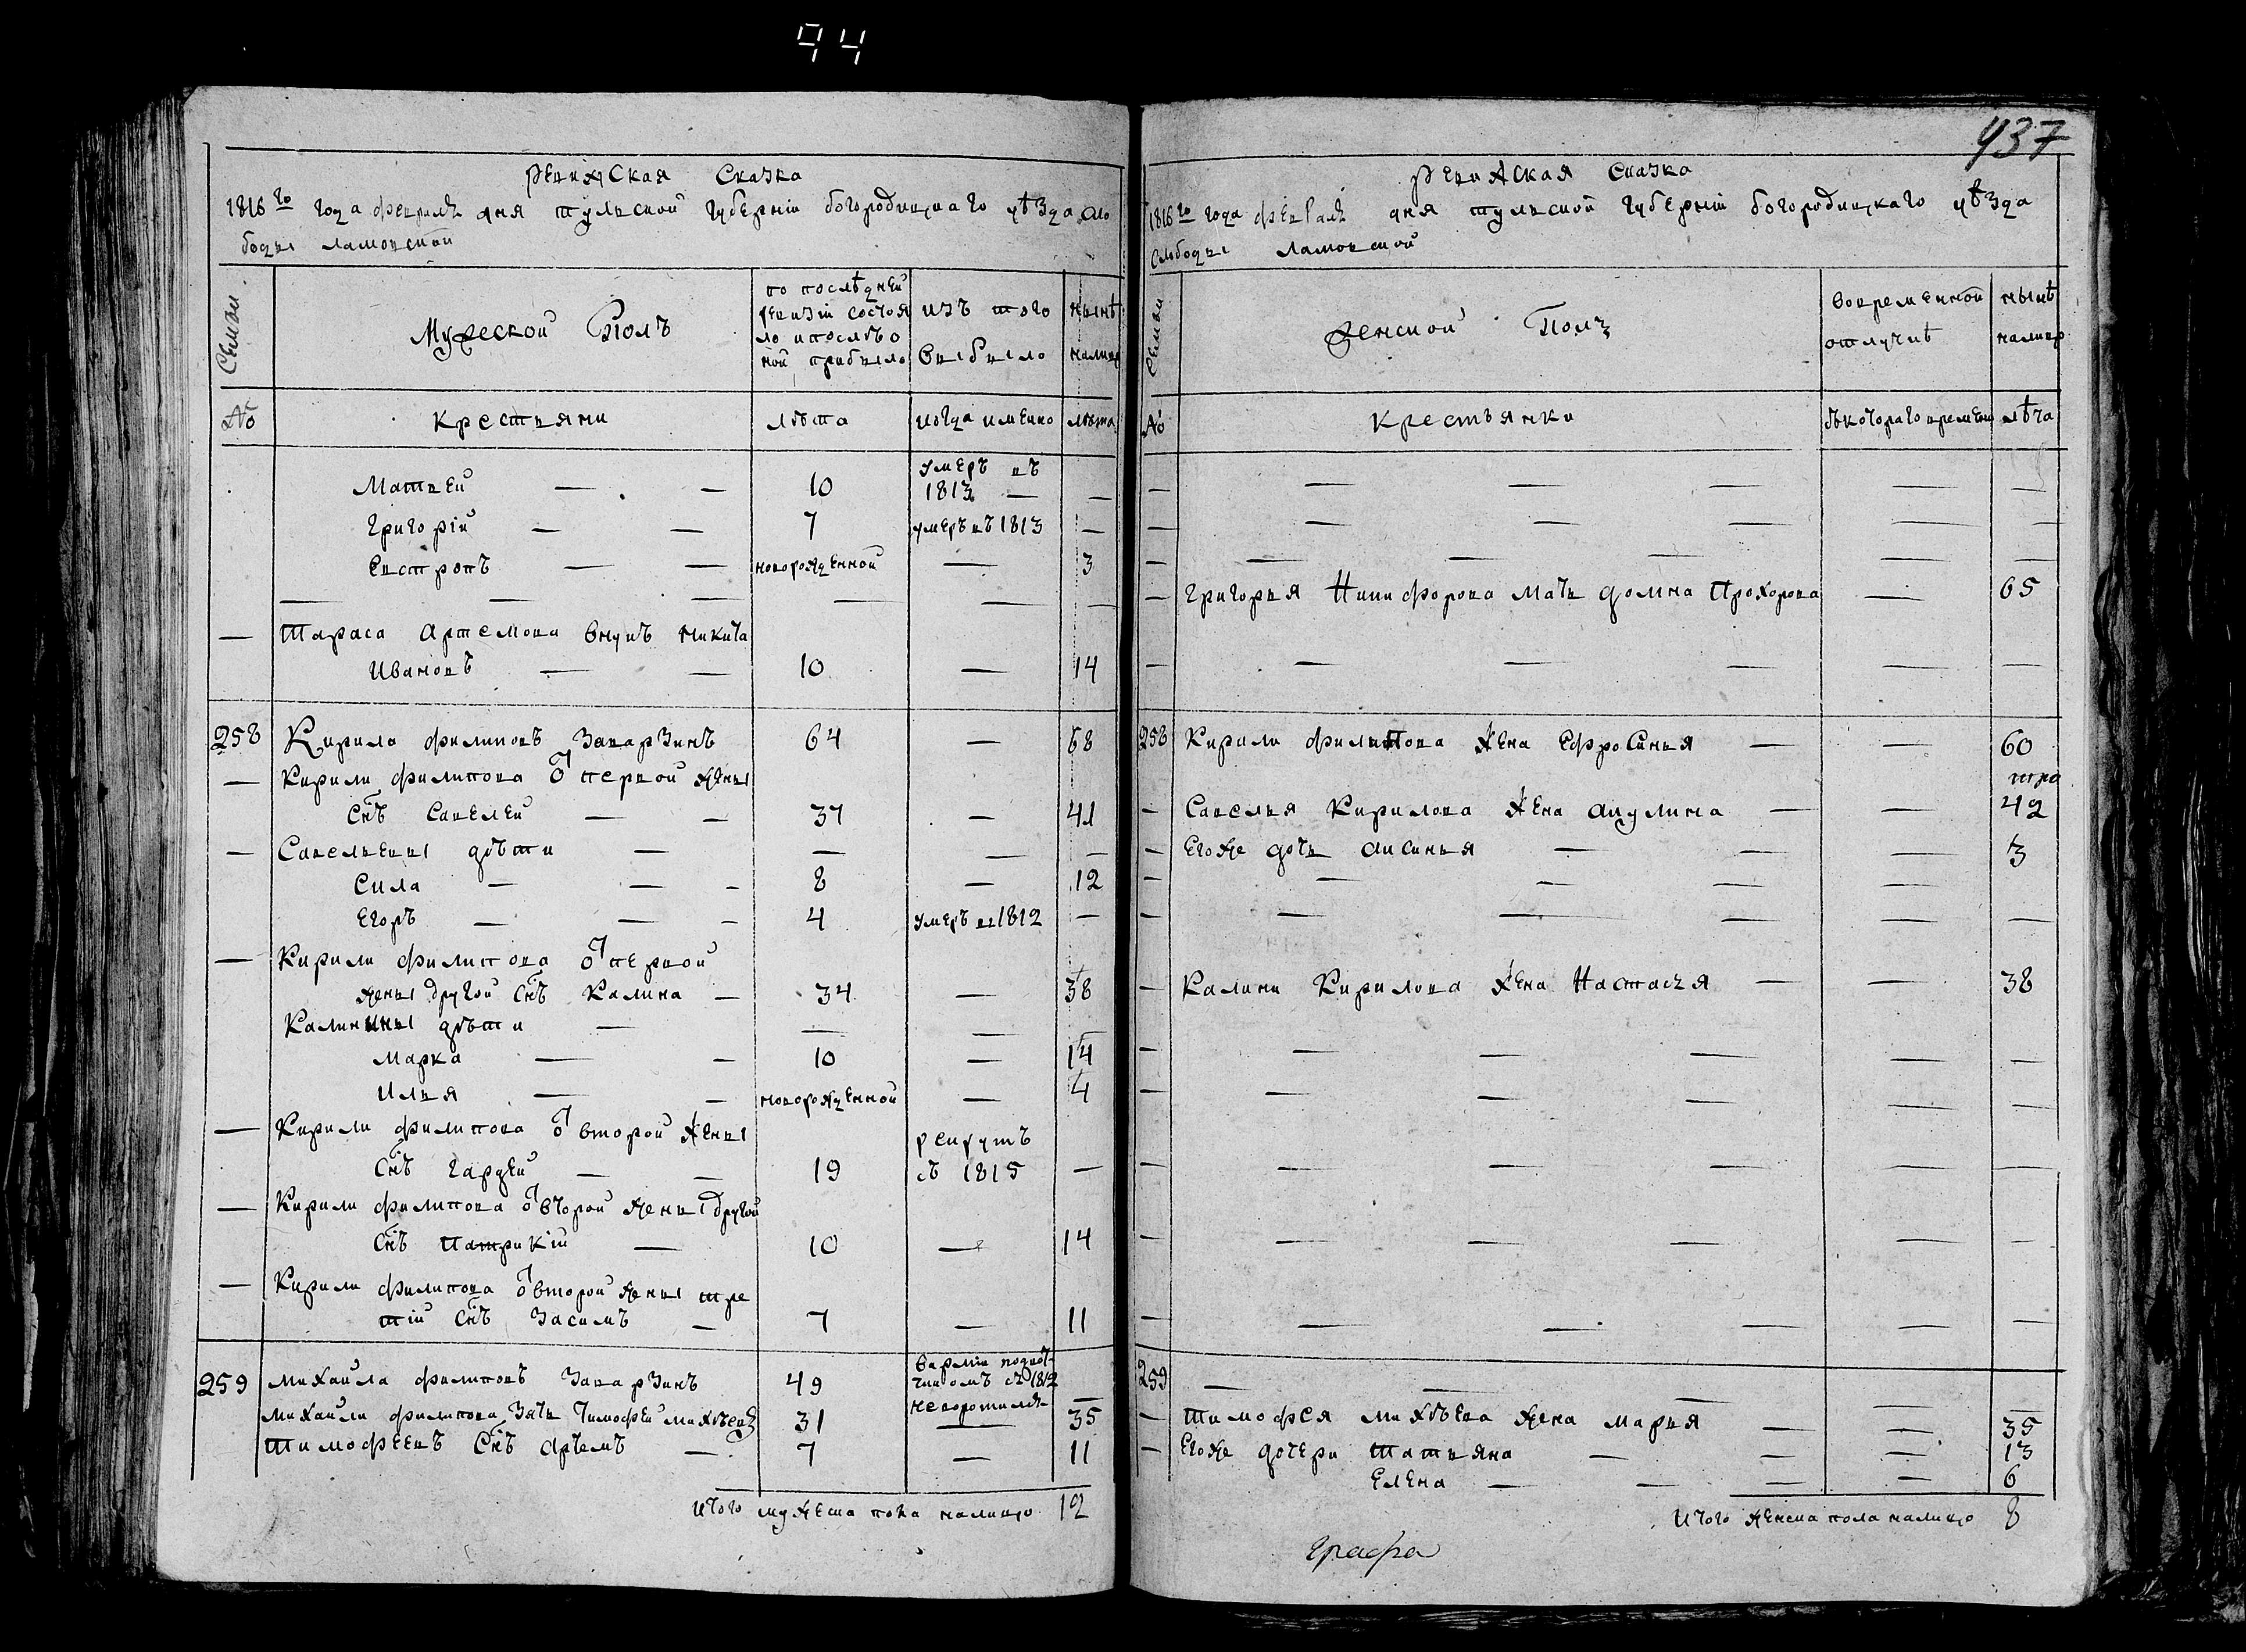 94
937
Ревижская Сказка
1816го года февраля дня тульской губерніи богородицкаго уѣзда сло
боды ламовской
Семьи
Мужеской Полъ
по послѣдней
ревизіи состоя
ло и послѣ о
ной прибыло
изъ того
выбыло
нынѣ
налицо
№
Крестьяни
лѣта
когда именно
лѣта
Матвей — — 10 умеръ въ
1813 — —
григорій — — 7 умеръ въ 1813 —
Евстропъ — — новорожденной — 3
— — — — — —
— Тараса Артемова внукъ никита
Ивановъ — — 10 — 14
258 Кирила филиповъ Заварзинъ 64 — 68
— Кирили филипова от первой жены
Снъ Савелей — — 37 — 41
— Савельевы дѣти — — — —
Сила — — - 8 — 12
Егоръ — — - 4 умеръ в 1812 —
— Кирили филипова от первой
жены другой Снъ Калина — 34 — 38
Калинины дѣти — — —
Марка — - 10 — 14
Илья — - новорожденной — 4
— Кирили филипова от второй жены рекрутъ
Снъ гардей — — 19 съ 1815 —
— Кирили филипова от второй жены другой
Снъ Патрикій — 10 — 14
— Кирили филипова от второй жены тре
тій Снъ Засимъ — 7 — 11
259 михаила филиповъ Заварзинъ 49 —
михаили филипова Зять тимофей михѣевъ 31 — 35
Тимофеевъ Снъ артемъ — 7 — 11
Итого мужеска пола налицо 12
Ревижская Сказка
1816го года февраля дня тульской губерніи богородицкаго уѣзда
Слободы ламовской
Семьи
женской Полъ
во временной
отлучкѣ
нынѣ
налицо
№
Крестьянки
съкотораго времени
лѣта
— — — — — —
— — — — — —
— — — — — —
— григорья Никифорова мать домна Прохорова — 65
— — — — — —
258 Кирили филипова жена Ефросинья — — 60
— Савелья Кирилова жена акулина — — 42
— Егоже дочь аксинья — — — 3
— — — — —
— — — — — —
— Калини Кирилова жена Настасья — — 38
— — — — — —
— — — — — —
— — — — — —
— — — — — —
— — — — — —
259 — — — — —
— тимофея михѣева жена марья — — 35
— Егоже дочери татьяна — — — 13
Елена — — — — 6
Итого женска пола налицо 8
графа